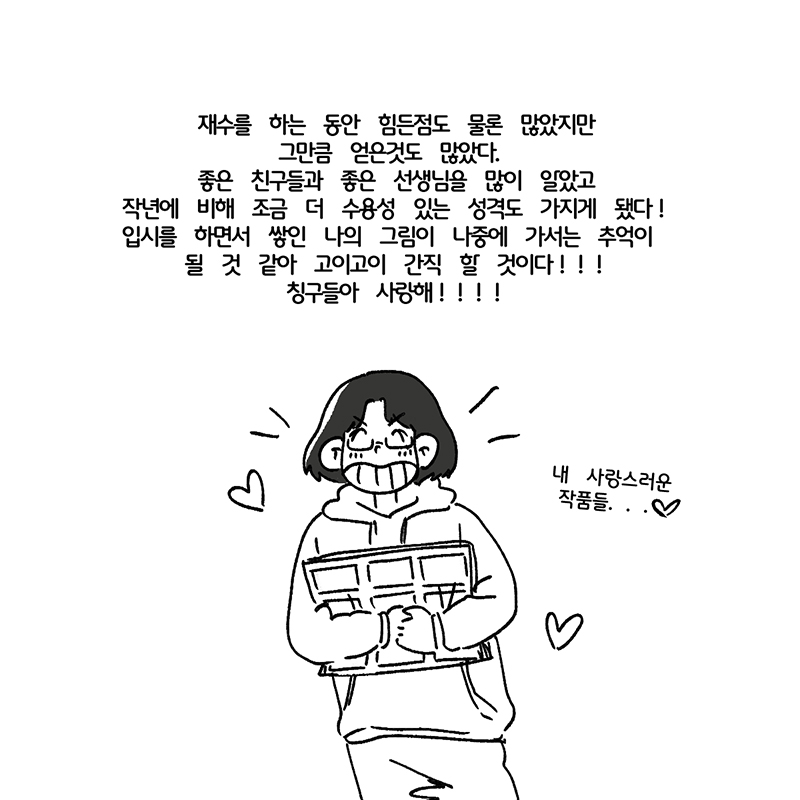 재수를 하는 동안 힘든점도 물론 많았지만
그만큼 얻은것도 많았다.
좋은 친구들과 좋은 선생님을 많이 알았고
작년에 비해 조금 더 수용성 있는 성격도 가지게 됐다!
입시를 하면서 쌓인 나의 그림이 나중에 가서는 추억이
될 것 같아 고이고이 간직 할 것이다!!!
칭구들아 사랑해!!!!
내 사랑스러운
작품들...♡